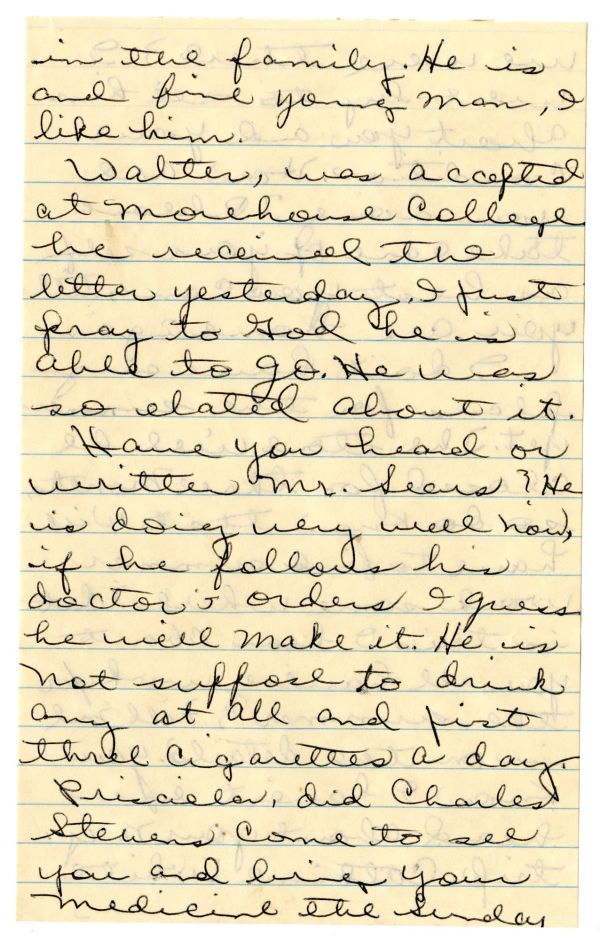 in the family. He is
and fine young man, I
like him.
Walter, was accepted
at Morehouse College
he received the
letter yesterday. I just
pray to God he is
able to go. He was
so elated about it.
Have you heard or
written Mr. Sears? He
is doing very well now,
if he follows his
doctor's orders I guess
he will make it. He is
not suppose to drink
any at all and just
three cigarettes a day.
Priscilla, did Charles
Stevens come to see
you and bring your
medicine the Sunday